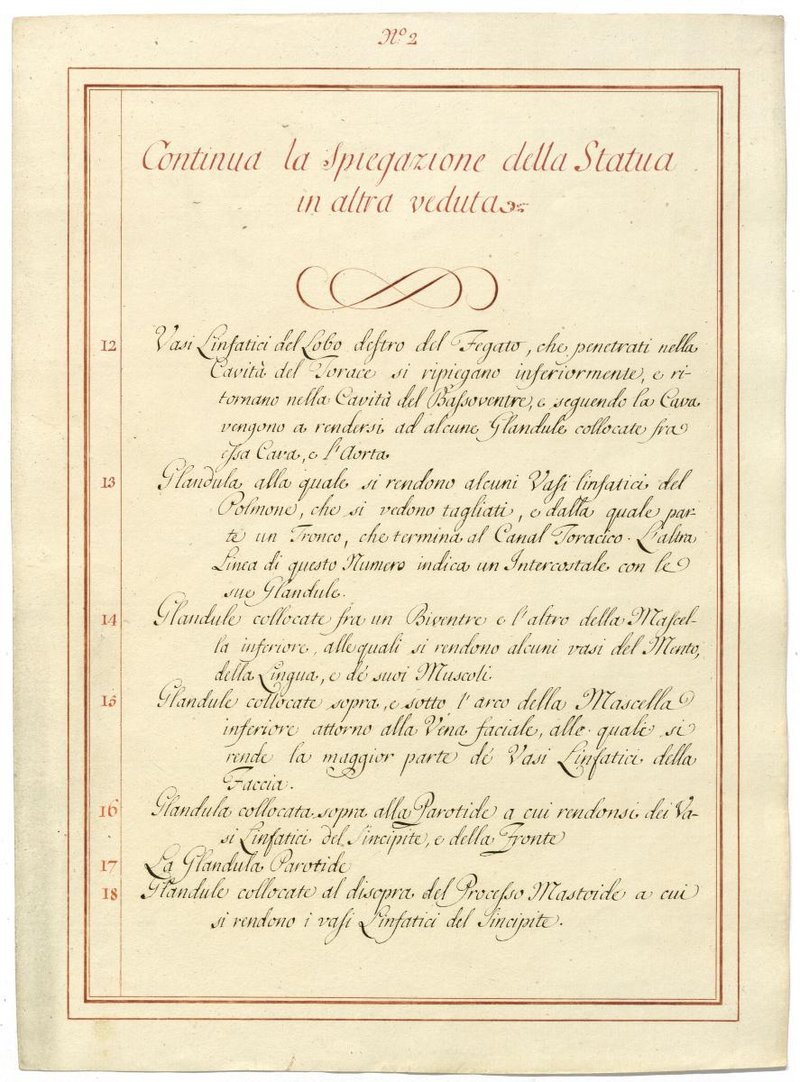 Nº 2
Continua la Spiegazione della Statua
in altra veduta
12 Vasi Linfatici del Lobo destro del Fegato, che penetrati nella
Cavità del Torace si ripiegano inferiormente, e ri-
tornano nella Cavità del Bassoventre, e seguendo la Cava
vengono a rendersi ad alcune Glandule collocate fra
essa Cava, e l'Aorta
13 Glandula alla quale si rendono alcuni Vasi linfatici del
Polmone, che si vedono tagliati, e dalla quale par-
te un Tronco, che termina al Canal Toracico. L'altra
Linea di questo Numero indica un Intercostale con le
sue Glandule.
14 Glandule collocate fra un Biventre e l'altro della Mascel-
la inferiore, alle quali si rendono alcuni vasi del Mento,
della Lingua, e de' suoi Muscoli.
15 Glandule collocate sopra, e sotto l'arco della Mascella
inferiore attorno alla Vena faciale, alle quali si
rende la maggior parte de' Vasi Linfatici della
Faccia.
16 Glandula collocata sopra alla Parotide a cui rendonsi dei Va-
si Linfatici del Sincipite, e della Fronte
17 La Glandula Parotide
18 Glandule collocate al disopra del Processo Mastoide a cui
si rendono i vasi Linfatici del Sincipite.